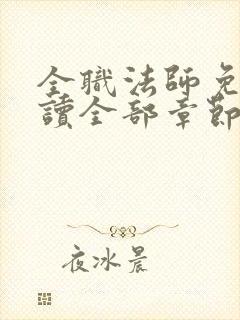 全職法師免
讀全部章節
夜冰晨